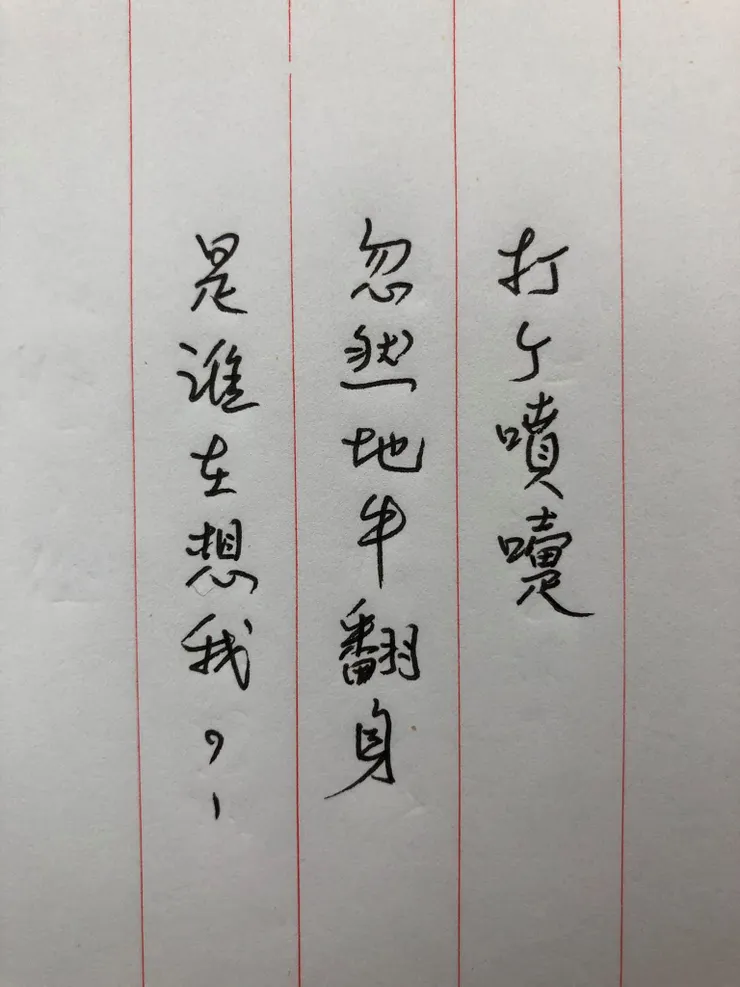 打个噴嚏
忽然地牛翻身
是誰在想我,